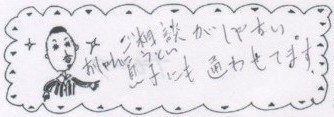 ご相談がしやすい
息子にも通わせてます。